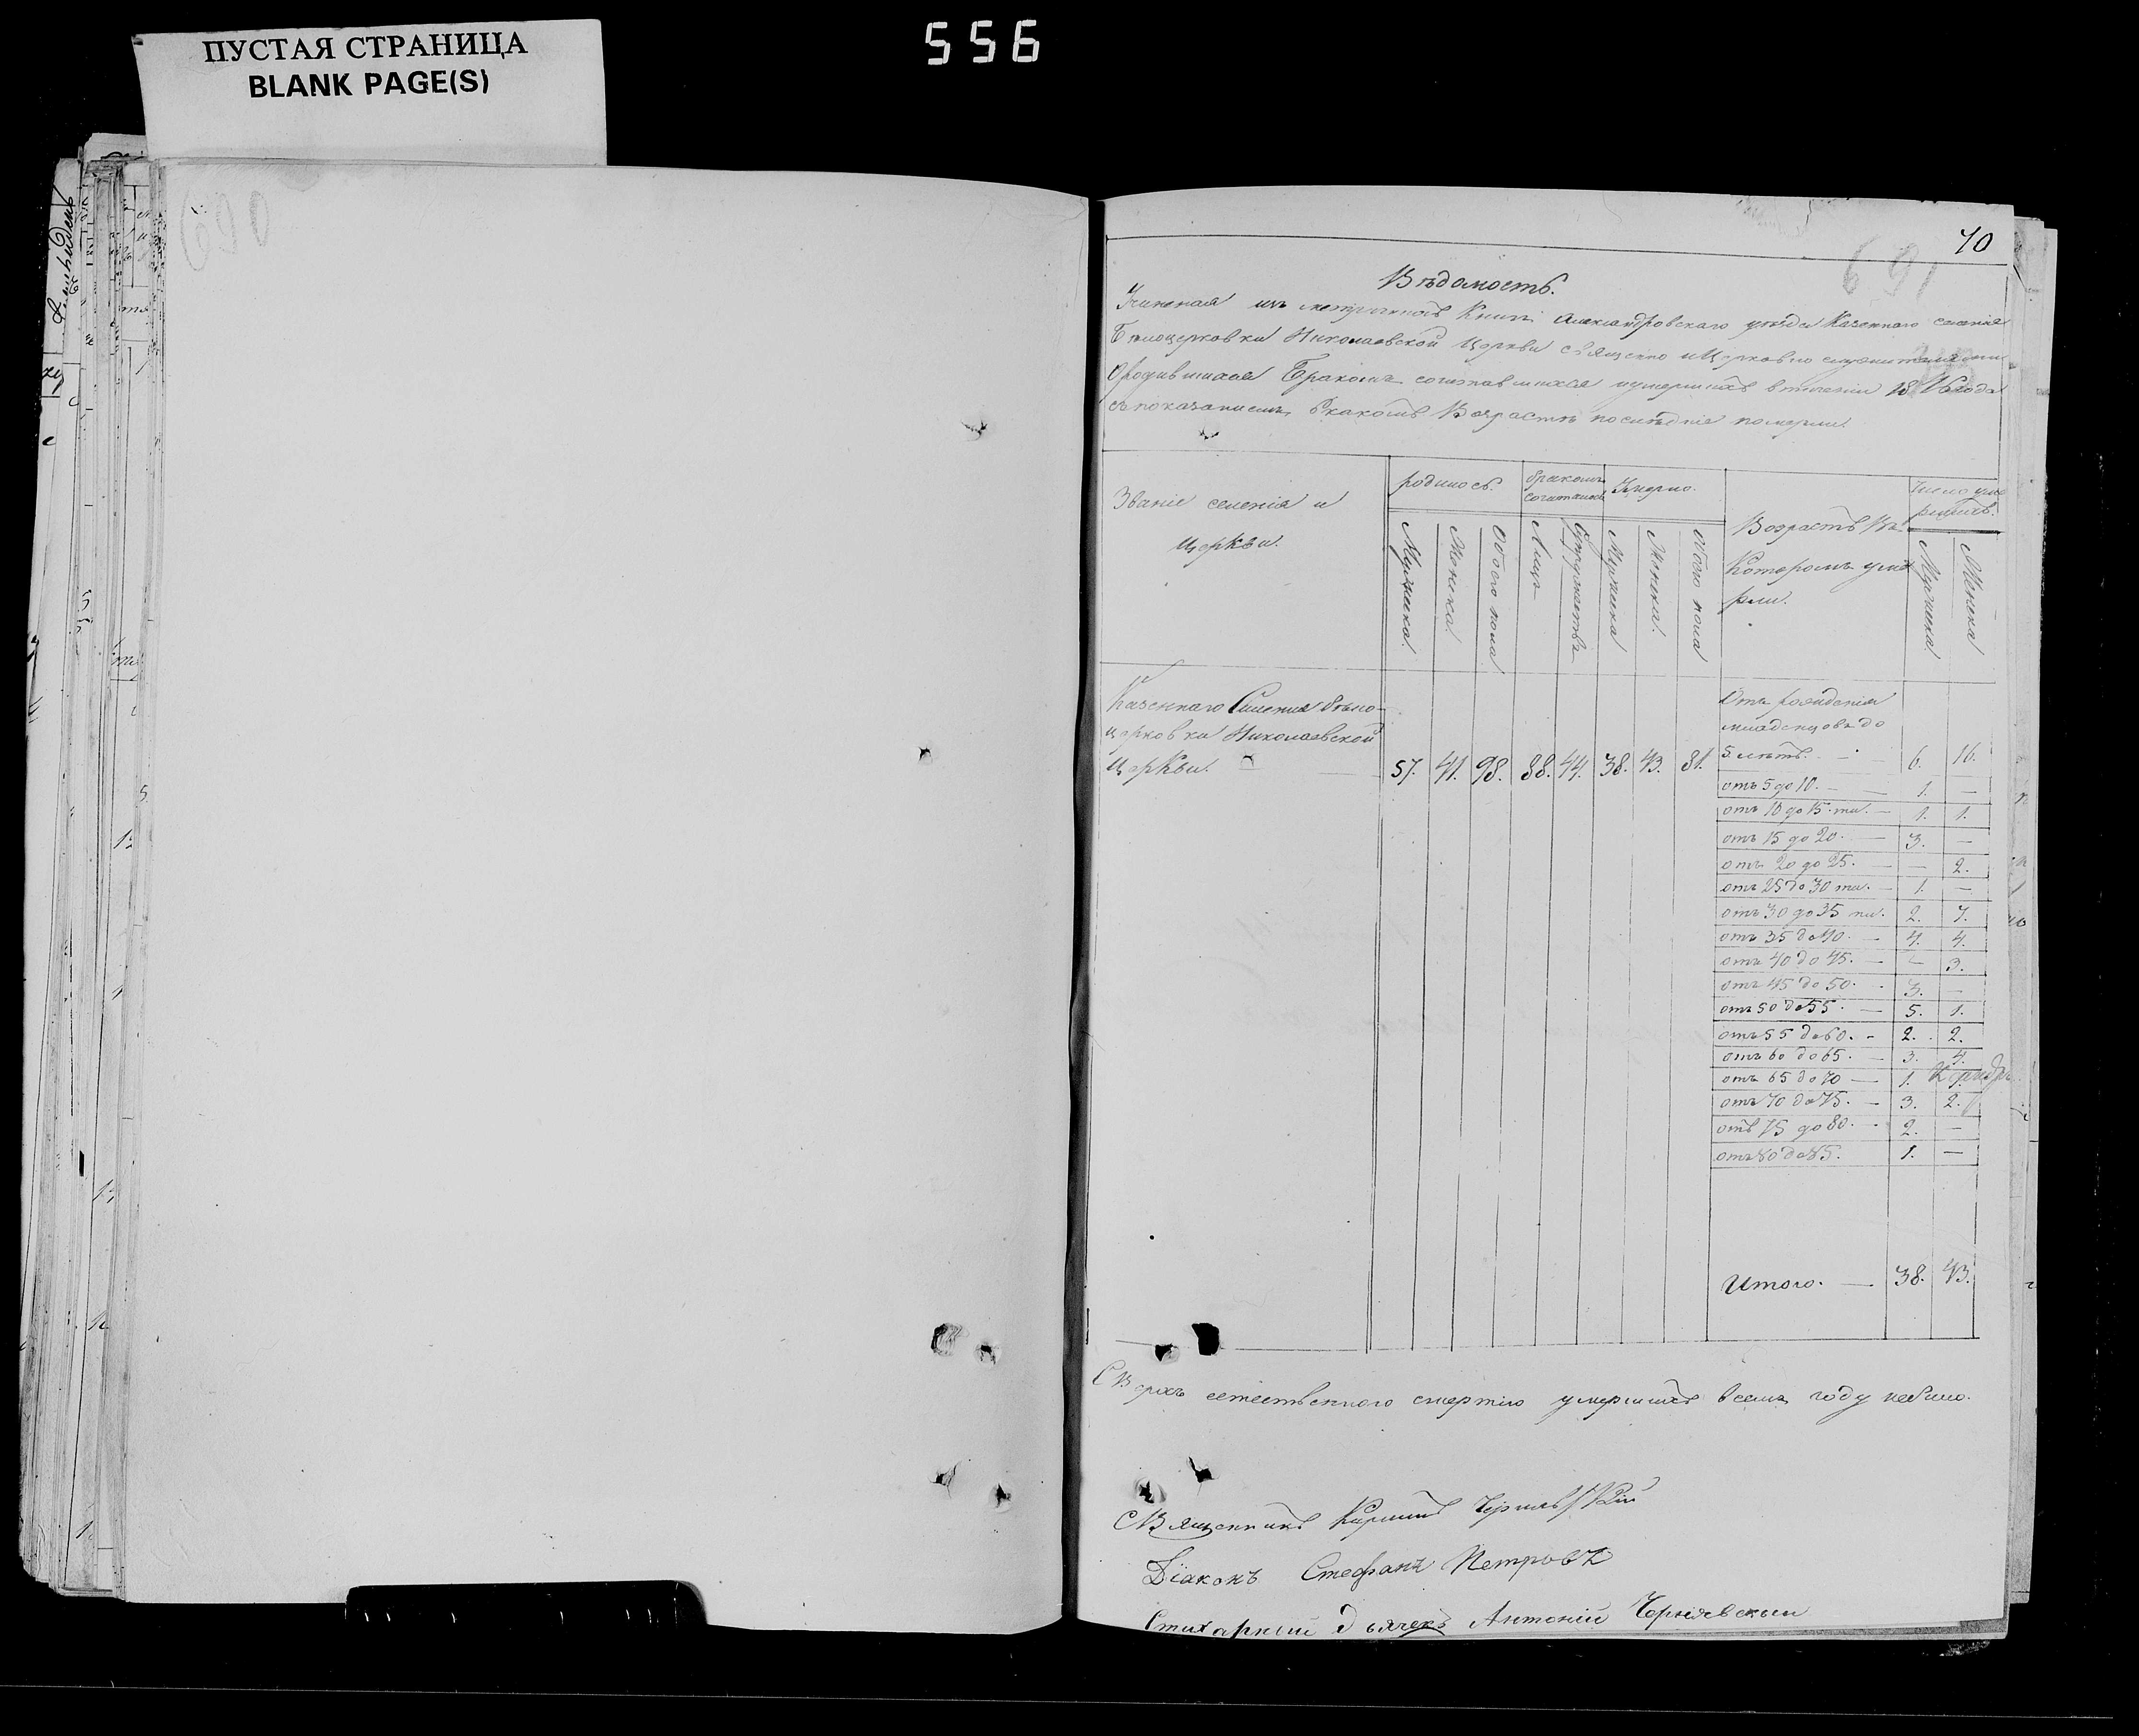 556
ПУСТАЯ СТРАНИЦА
BLANK PAGE(S)
690
70
691
Вѣдомость.
Учиненая изъ метричкихъ Книгъ Александровскаго уѣзда Казеннаго селенія
Бѣлоцерковки Николаевской Церкви священно и Церковно служителями
Ородившихся Бракомъ сочетавшихся и умершихъ втечении 18 года
съ показаниемъ Вкакомъ Возрастѣ послѣдніе померли.
Званіе селенія и
Церкви.
родилось.
бракомъ
сочетались
Умерло.
Возрастъ Въ
Которомъ уме
рли.
Число уме
ршихъ.
Мужеска
Женска
Обоего пола
Лицъ
Супружествъ
Мужеска
Женска
обоего пола
Мужеска
Женска
Казеннаго Селения Бѣло
церковки Николаевской
Церкви. 57. 41. 98. 88. 44. 38. 43. 81.
Отъ рождения
младенцовъ до
5 лѣтъ. 6. 16.
отъ 5 до 10. — 1. —
отъ 10 до 15. ти. — 1. 1.
отъ 15 до 20. — 3. —
отъ 20 до 25. — — 2.
отъ 25 до 30 ти. — 1. —
отъ 30 до 35 ти. 2. 7.
отъ 35 до 40. — 4. 4.
отъ 40 до 45. — — 3.
отъ 45 до 50. 3. —
отъ 50 до 55. — 5. 1.
отъ 55 до 60. - 2. 2.
отъ 60 до 65. — 3. 4.
отъ 65 до 70 — 1.
отъ 70 до 75. — 3. 2.
отъ 75 до 80. 2. —
отъ 80 до 85. 1. —
Итого. — 38. 43.
Сверхъ естественного смертію умершихъ всемъ году небыло.
Священникъ Кирилъ
Діаконъ Стефанъ Петровъ
Стихарный дьячекъ Антоній Чернявский